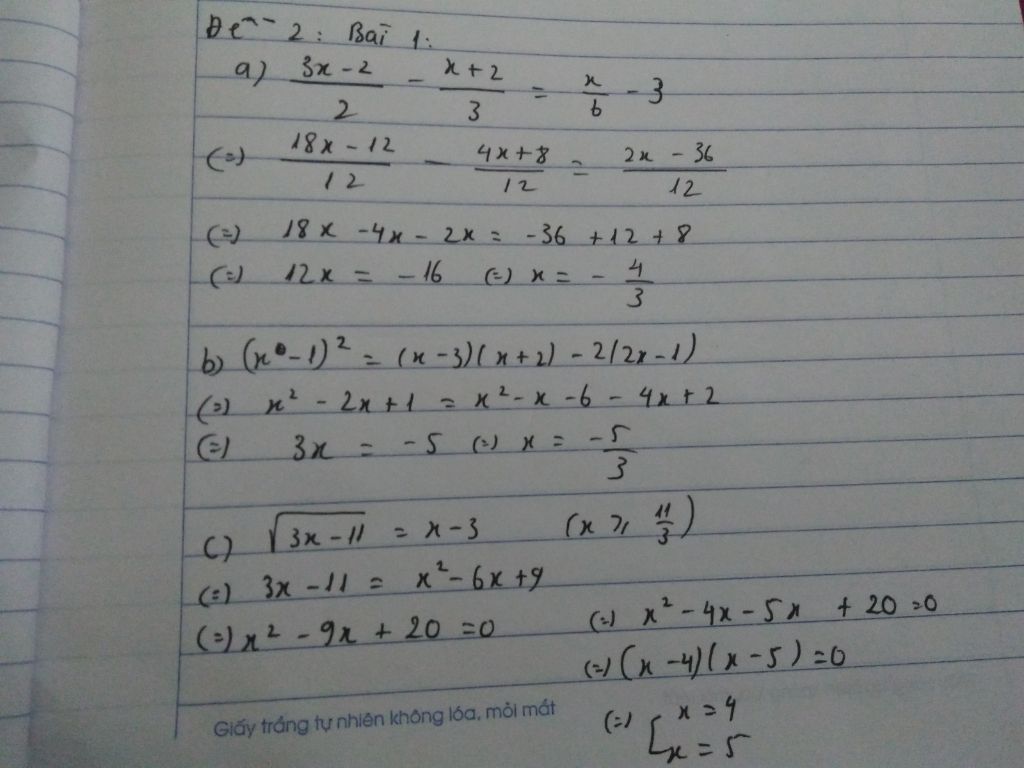 Đề 2: Bài 1:
a) (3x - 2)/2 - (x + 2)/3 = x/6 - 3
(=) (18x - 12)/12 - (4x + 8)/12 = (2x - 36)/12
(=) 18x - 4x - 2x = -36 + 12 + 8
(=) 12x = -16 (=) x = -4/3
b) (x - 1)² = (x - 3)(x + 2) - 2(2x - 1)
(=) x² - 2x + 1 = x² - x - 6 - 4x + 2
(=) 3x = -5 (=) x = -5/3
c) √(3x - 11) = x - 3 (x ⩾ 11/3)
(=) 3x - 11 = x² - 6x + 9
(=) x² - 9x + 20 = 0
(=) x² - 4x - 5x + 20 = 0
(=) (x - 4)(x - 5) = 0
(=) [ x = 4
x = 5
Giấy trắng tự nhiên không lóa, mỏi mắt